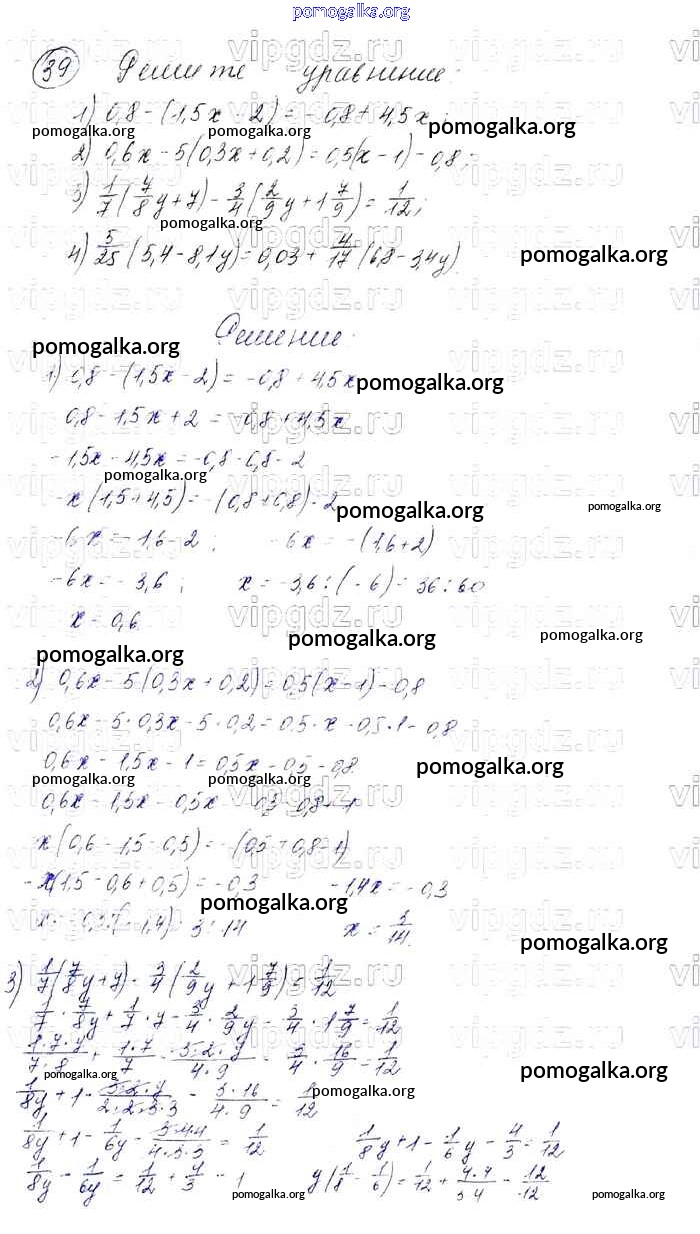 pomogalka.org
39 Решите уравнение:
1) 0,8 - (1,5x - 2) = -0,8 + 4,5x;
pomogalka.org pomogalka.org pomogalka.org
2) 0,6x - 5(0,3x + 0,2) = 0,5(x - 1) - 0,8;
3) 1/7 (7/8 y + 7) - 3/4 (2/9 y + 1 7/9) = 1/12;
pomogalka.org
4) 5/25 (5,4 - 8,1y) = 0,03 + 4/17 (6,8 - 3,4y)
pomogalka.org
Решение:
pomogalka.org
1) 0,8 - (1,5x - 2) = -0,8 + 4,5x
pomogalka.org
0,8 - 1,5x + 2 = -0,8 + 4,5x
-1,5x - 4,5x = -0,8 - 0,8 - 2
pomogalka.org
-x(1,5 + 4,5) = -(0,8 + 0,8) - 2
pomogalka.org pomogalka.org
-6x = -1,6 - 2; -6x = -(1,6 + 2)
-6x = -3,6; x = -3,6 : (-6) = 36 : 60
x = 0,6.
pomogalka.org pomogalka.org
pomogalka.org
2) 0,6x - 5(0,3x + 0,2) = 0,5(x - 1) - 0,8
0,6x - 5 · 0,3x - 5 · 0,2 = 0,5 · x - 0,5 · 1 - 0,8
0,6x - 1,5x - 1 = 0,5x - 0,5 - 0,8
pomogalka.org pomogalka.org pomogalka.org
0,6x - 1,5x - 0,5x = -0,5 - 0,8 + 1
x(0,6 - 1,5 - 0,5) = -(0,5 + 0,8 - 1)
-x(1,5 - 0,6 + 0,5) = -0,3 -1,4x = -0,3
pomogalka.org
x = -0,3 : (-1,4) = 3 : 14 x = 3/14.
pomogalka.org
3) 1/7 (7/8 y + 7) - 3/4 (2/9 y + 1 7/9) = 1/12
1/7 · 7/8y + 1/7 · 7 - 3/4 · 2/9y - 3/4 · 1 7/9 = 1/12
1·7·y/7·8 + 1·7/7 - 3·2·y/4·9 - 3/4 · 16/9 = 1/12
pomogalka.org pomogalka.org
1/8y + 1 - 3·2·y/2·2·3·3 - 3·16/4·9 = 1/12
pomogalka.org
1/8y + 1 - 1/6y - 3·4·4/4·3·3 = 1/12 1/8 y + 1 - 1/6 y - 4/3 = 1/12
1/8y - 1/6y = 1/12 + 4/3 - 1 y(1/8 - 1/6) = 1/12 + 4·4/3·4 - 12/12
pomogalka.org pomogalka.org pomogalka.org